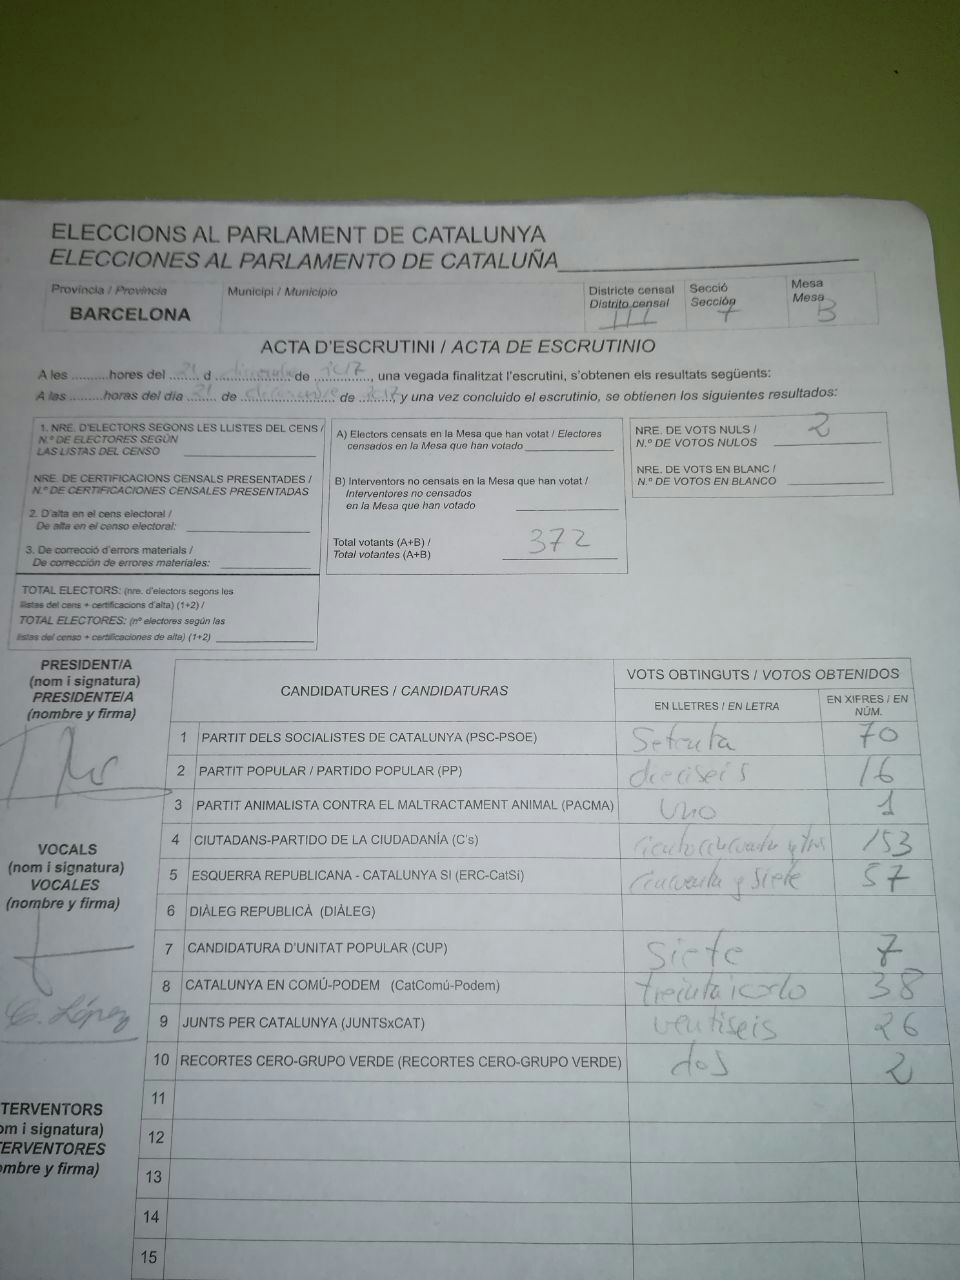 ELECCIONS AL PARLAMENT DE CATALUNYA
ELECCIONES AL PARLAMENTO DE CATALUÑA
Província / Provincia
BARCELONA
Municipi / Municipio
Districte censal
Distrito censal
III
Secció
Sección
7
Mesa
Mesa
B
ACTA D'ESCRUTINI / ACTA DE ESCRUTINIO
A les ..........hores del 21 d diciembre de 2017, una vegada finalitzat l'escrutini, s'obtenen els resultats següents:
A las ..........horas del día 21 de diciembre de 2017 y una vez concluido el escrutinio, se obtienen los siguientes resultados:
1. NRE. D'ELECTORS SEGONS LES LLISTES DEL CENS /
N.º DE ELECTORES SEGÚN
LAS LISTAS DEL CENSO
NRE. DE CERTIFICACIONS CENSALS PRESENTADES /
N.º DE CERTIFICACIONES CENSALES PRESENTADAS
2. D'alta en el cens electoral /
De alta en el censo electoral:
3. De correcció d'errors materials /
De corrección de errores materiales:
TOTAL ELECTORS: (nre. d'electors segons les
llistas del cens + certificacions d'alta) (1+2) /
TOTAL ELECTORES: (nº electores según las
listas del censo + certificaciones de alta) (1+2)
A) Electors censats en la Mesa que han votat / Electores
censados en la Mesa que han votado
B) Interventors no censats en la Mesa que han votat /
Interventores no censados
en la Mesa que han votado
Total votants (A+B) /
Total votantes (A+B)
372
NRE. DE VOTS NULS /
N.º DE VOTOS NULOS
2
NRE. DE VOTS EN BLANC /
N.º DE VOTOS EN BLANCO
PRESIDENT/A
(nom i signatura)
PRESIDENTE/A
(nombre y firma)
VOCALS
(nom i signatura)
VOCALES
(nombre y firma)
C. López
TERVENTORS
om i signatura)
TERVENTORES
ombre y firma)
CANDIDATURES / CANDIDATURAS
VOTS OBTINGUTS / VOTOS OBTENIDOS
EN LLETRES / EN LETRA
EN XIFRES / EN
NÚM.
1 PARTIT DELS SOCIALISTES DE CATALUNYA (PSC-PSOE) Setenta 70
2 PARTIT POPULAR / PARTIDO POPULAR (PP) dieciseis 16
3 PARTIT ANIMALISTA CONTRA EL MALTRACTAMENT ANIMAL (PACMA) uno 1
4 CIUTADANS-PARTIDO DE LA CIUDADANÍA (C's) ciento cincuenta y tres 153
5 ESQUERRA REPUBLICANA - CATALUNYA SI (ERC-CatSí) cincuenta y siete 57
6 DIÀLEG REPUBLICÀ (DIÀLEG)
7 CANDIDATURA D'UNITAT POPULAR (CUP) siete 7
8 CATALUNYA EN COMÚ-PODEM (CatComú-Podem) 38
9 JUNTS PER CATALUNYA (JUNTSxCAT) ventiseis 26
10 RECORTES CERO-GRUPO VERDE (RECORTES CERO-GRUPO VERDE) dos 2
11
12
13
14
15